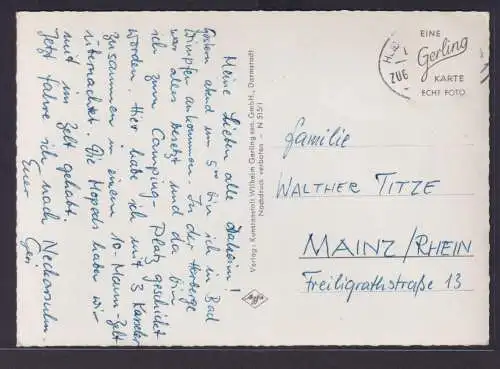 Meine Lieben alle daheim!
Gestern abend um 5°° bin ich in Bad
Wimpfen ankommen. In der Herberge
war alles besetzt und da bin
ich zum Camping Platz geschickt
worden. Hier habe ich mit 3 Kasseler
zusammen in einem 10-Mann-Zelt
übernachtet. Die Mopeds haben wir
mit im Zelt gehabt.
Jetzt fahre ich nach Neckarsulm.
Euer
Verlag u. Kunstanstalt Wilhelm Gerling sen. GmbH., Darmstadt
Nachdruck verboten - N 515/1
Agfa
EINE
Gerling
KARTE
ECHT FOTO
Familie
WALTHER TITZE
MAINZ/RHEIN
Freiligrathstraße 13